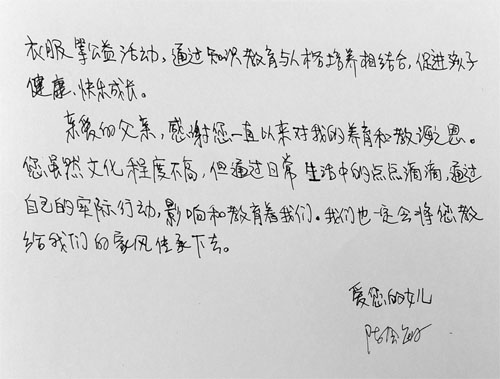 衣服等公益活动，通过知识教育与人格培养相结合，促进孩子
健康、快乐成长。
亲爱的父亲，感谢您一直以来对我的养育和教诲之恩。
您虽然文化程度不高，但通过日常生活中的点点滴滴，通过
自己的实际行动，影响和教育着我们。我们也一定会将您教
给我们的家风传承下去。
爱您的女儿